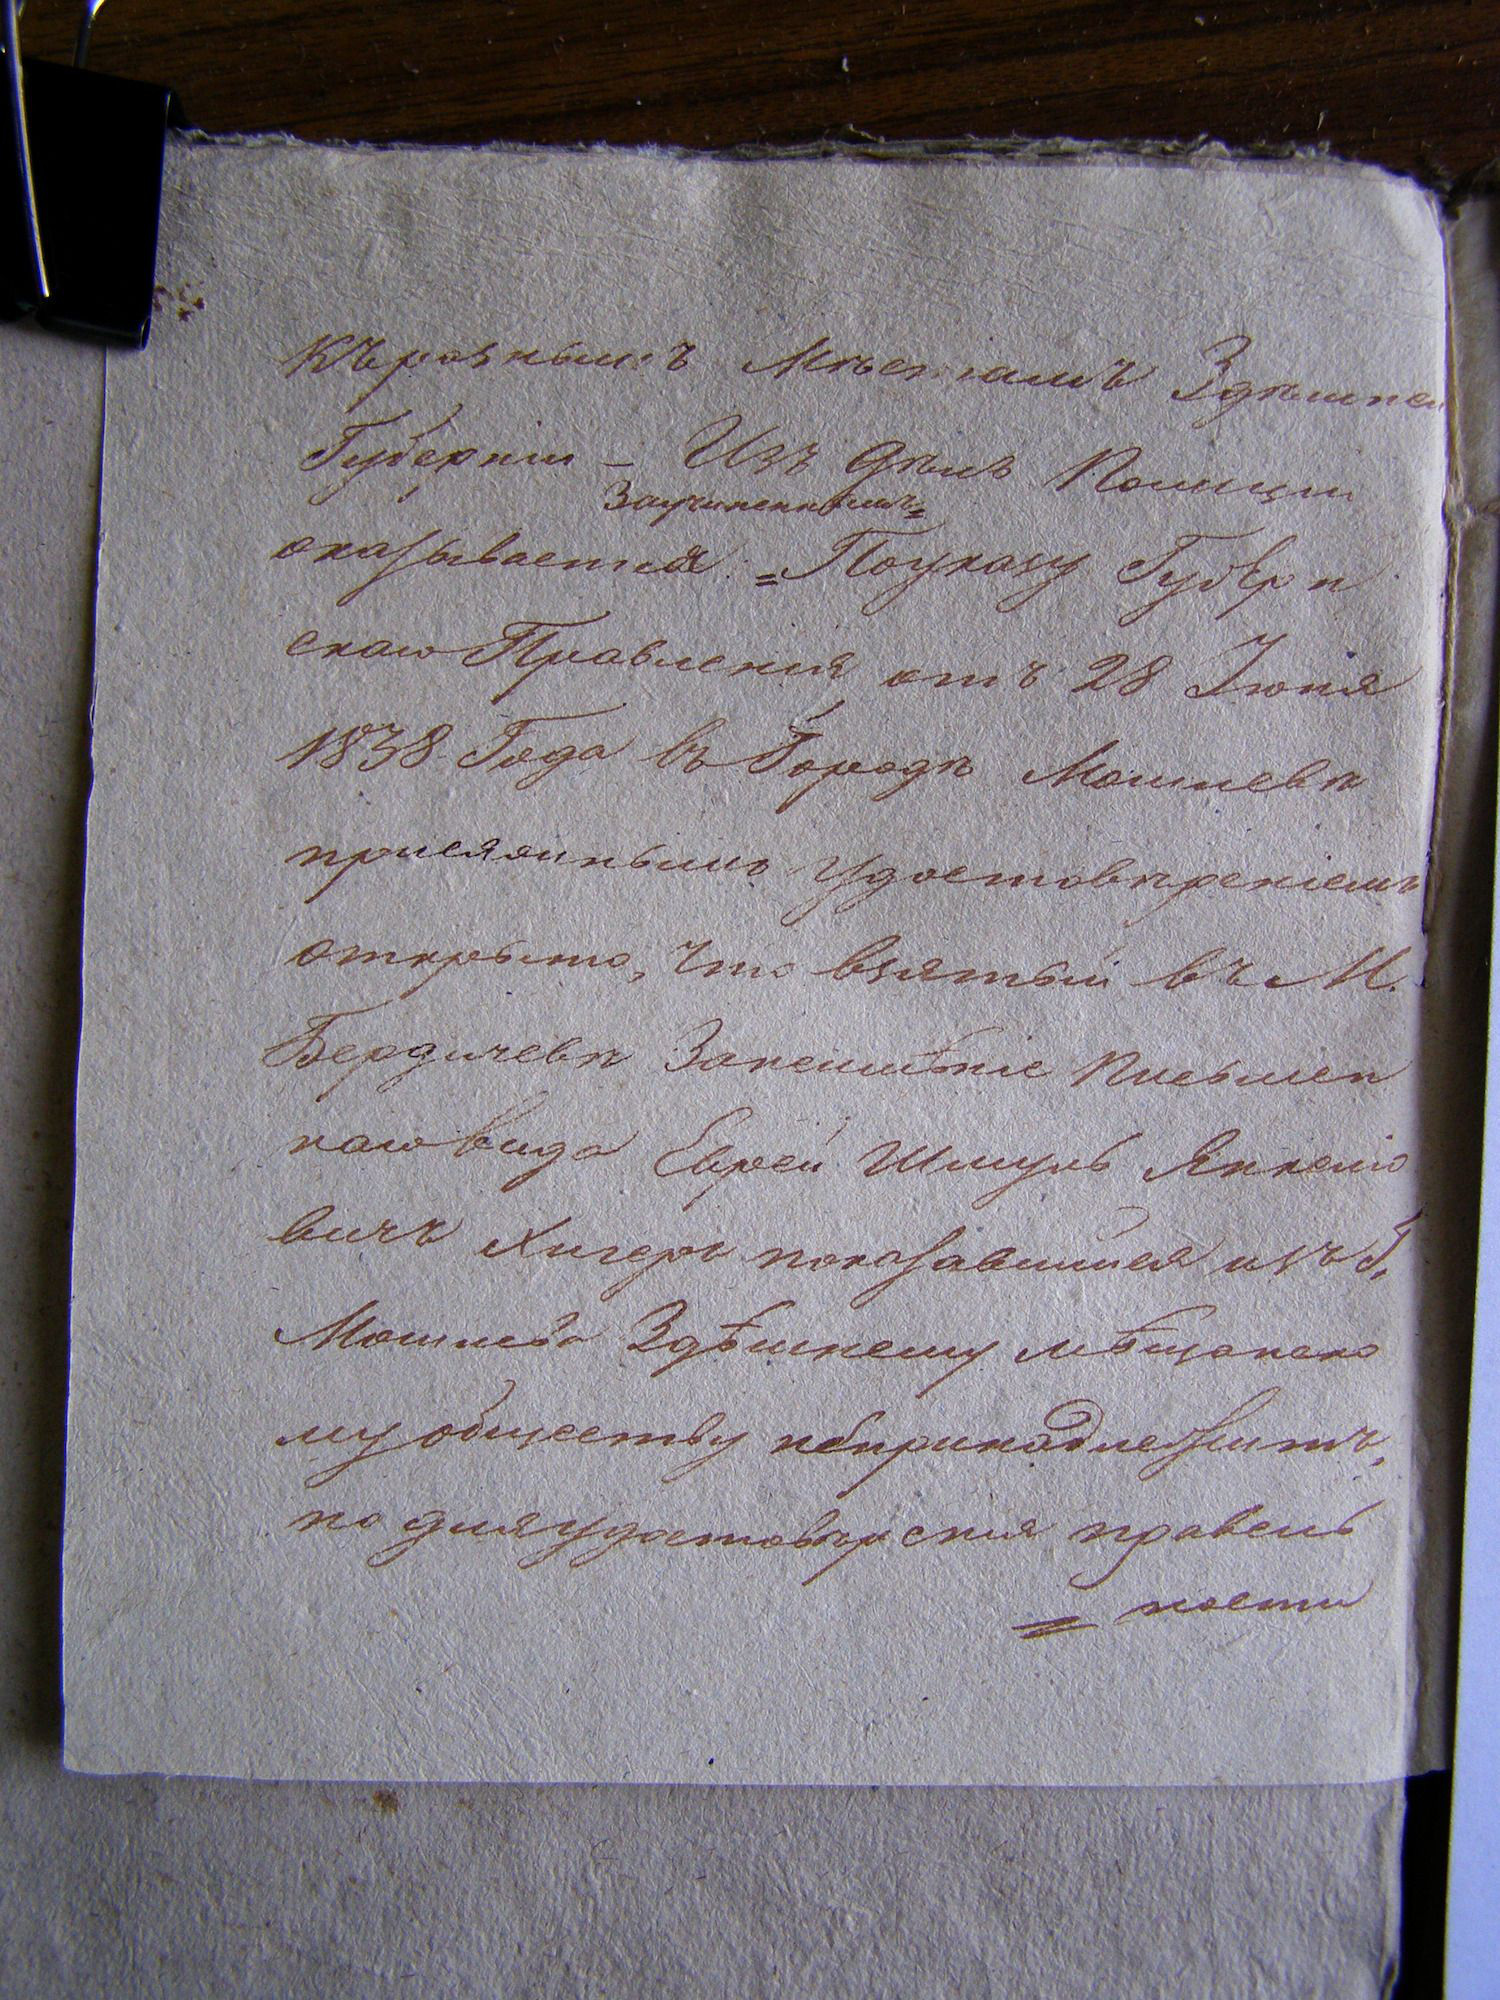 Къразнымъ Мѣстамъ Здѣшней
Губерніи – Изъ дѣлъ Полиціи
Заучиненнымъ =
оказывается = Поуказу Губерн
скаго Правленія отъ 28 Іюня
1838 Года въ Городѣ Могилевѣ
присяжнымъ Удостовѣреніемъ
открыто, что взятый въ М.
Бердичевѣ Занеимѣніе Писмен
наго вида Еврей Шмуль Янкелio
вичъ Хигеръ показавшійся изъ Г.
Могилева Здѣшнему мѣщанско
му обществу непринадлежитъ,
но дляудостовѣренія правель
= ности